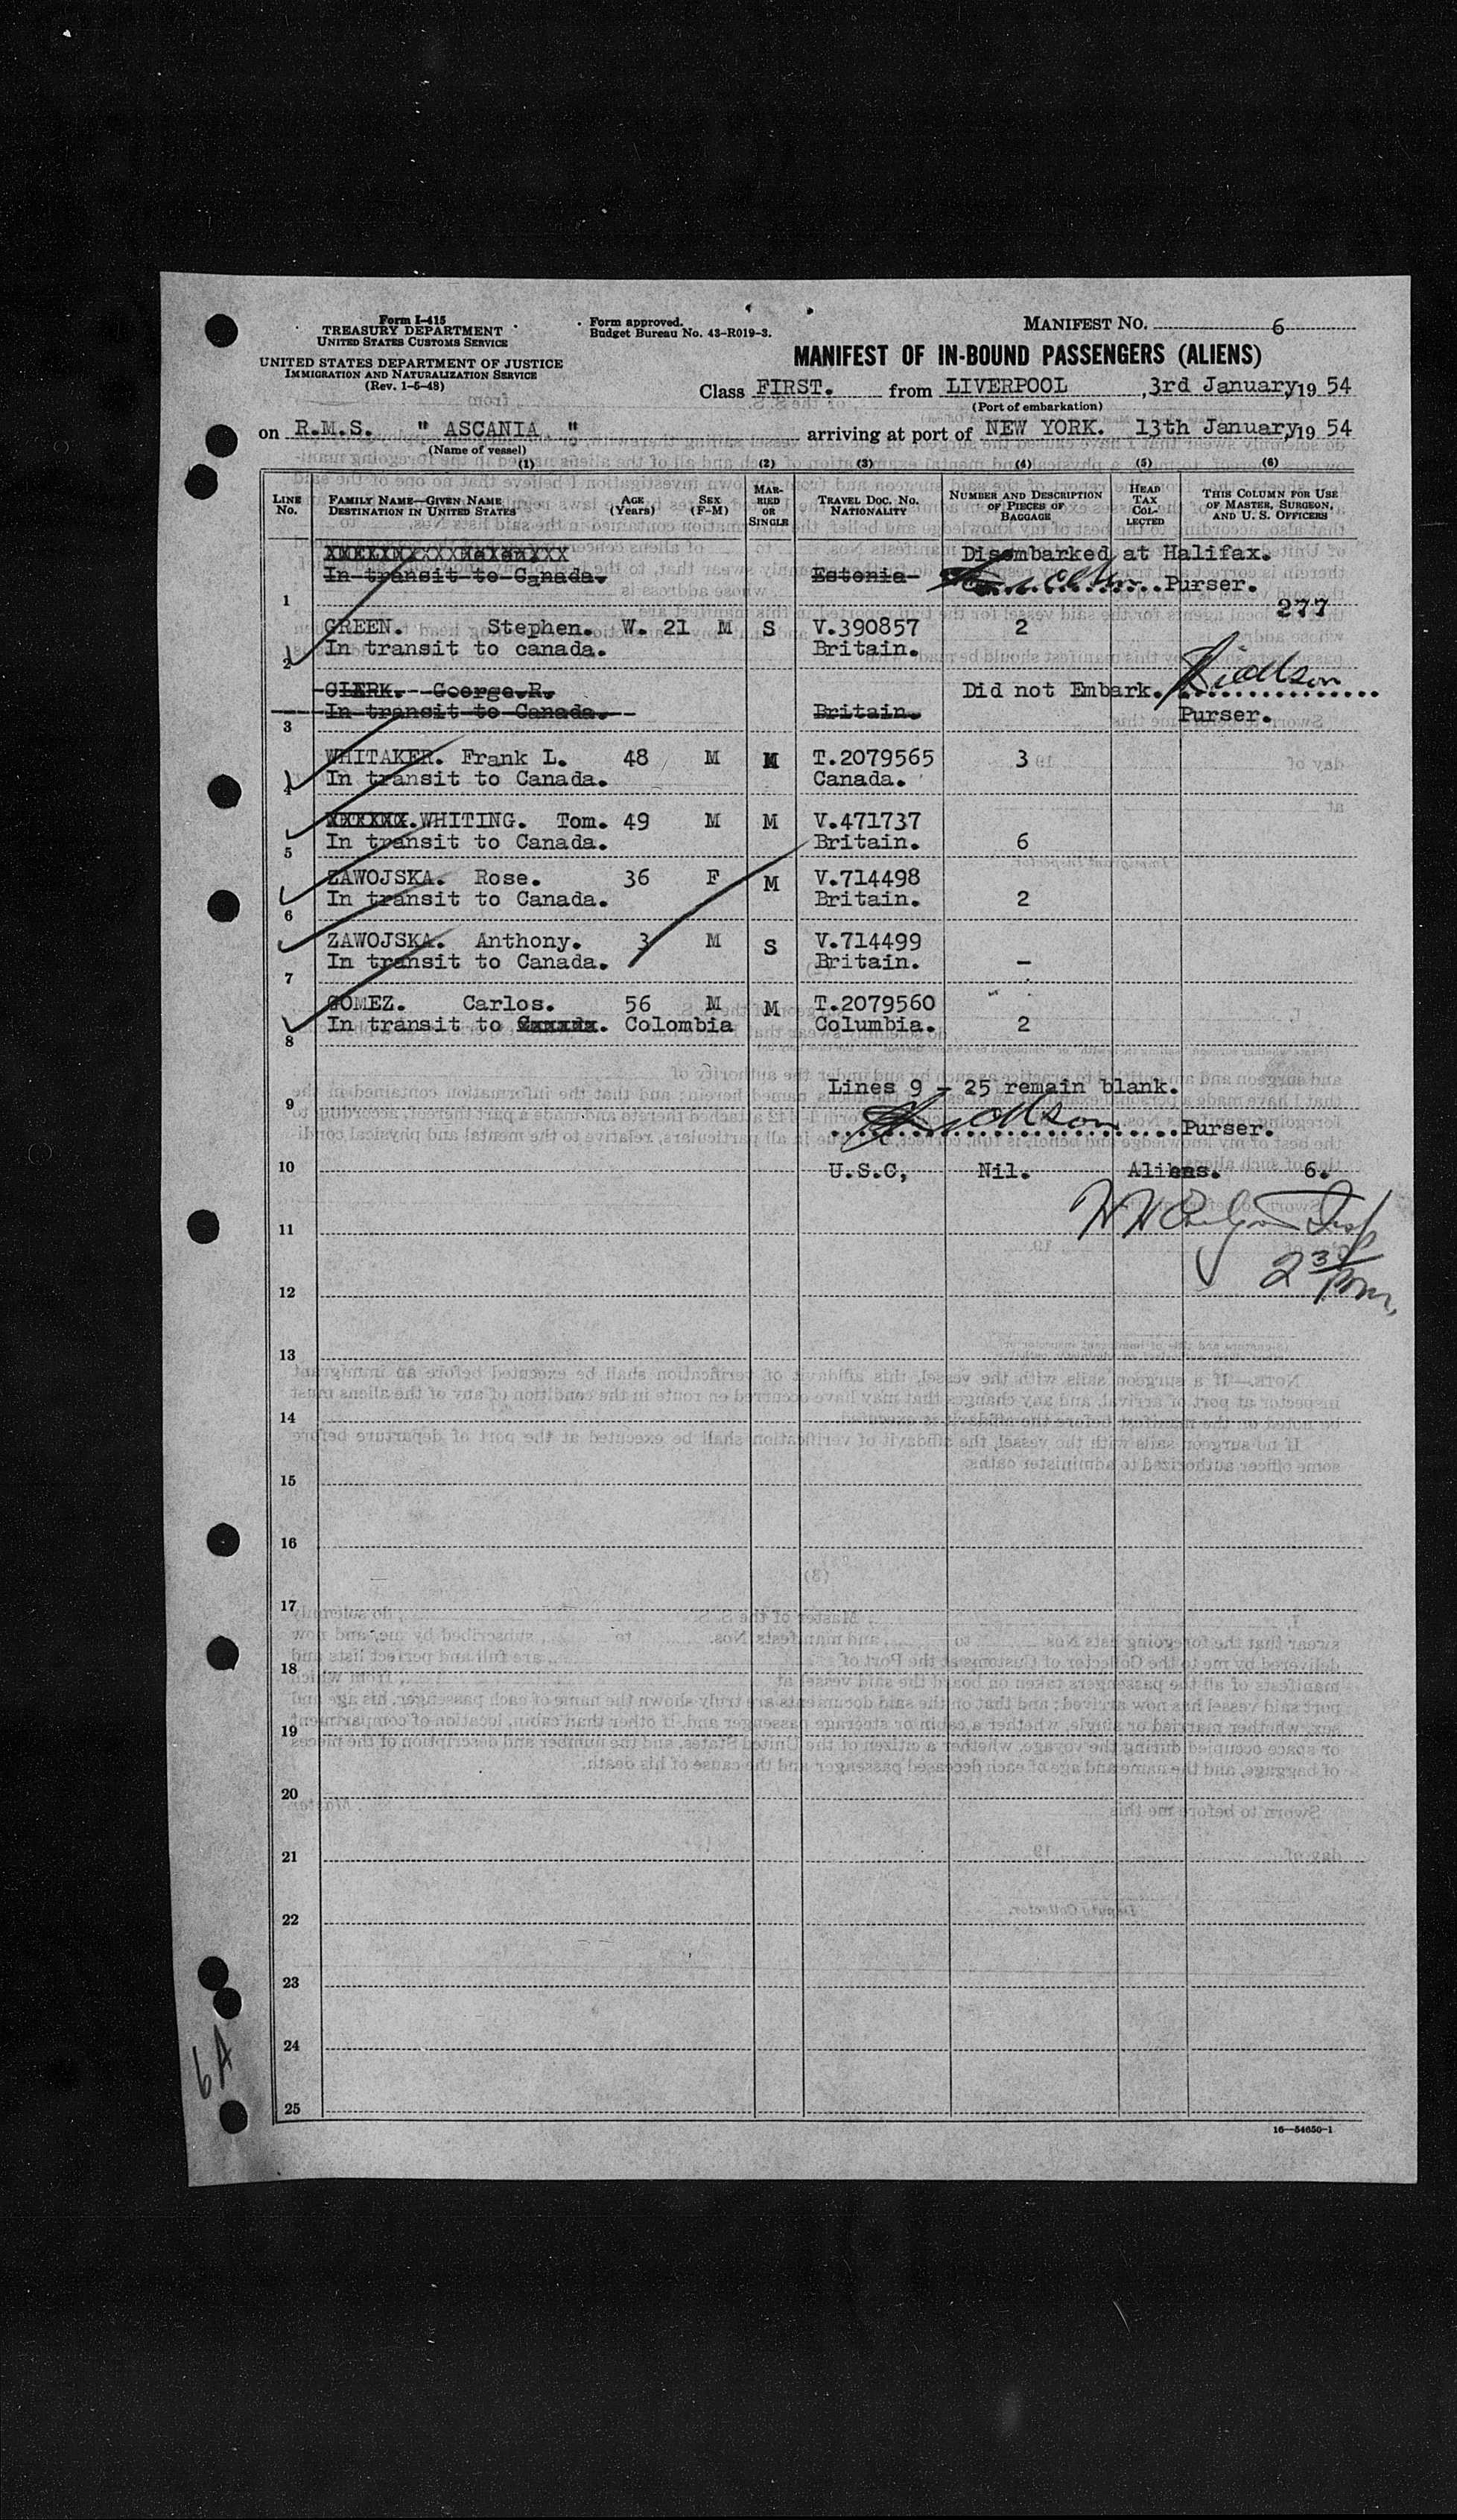 Form I-415
TREASURY DEPARTMENT
UNITED STATES CUSTOMS SERVICE
UNITED STATES DEPARTMENT OF JUSTICE
IMMIGRATION AND NATURALIZATION SERVICE
(Rev. 1-5-48)
Form approved.
Budget Bureau No. 43-R019-3.
MANIFEST NO. 6
MANIFEST OF IN-BOUND PASSENGERS (ALIENS)
Class FIRST. from LIVERPOOL ,3rd January,19 54
(Port of embarkation)
on R.M.S. " ASCANIA " arriving at port of NEW YORK. 13th January,19 54
(Name of vessel)
(1) (2) (3) (4) (5) (6)
LINE No. FAMILY NAME—GIVEN NAME DESTINATION IN UNITED STATES AGE (Years) SEX (F-M) MARRIED OR SINGLE TRAVEL DOC. NO. NATIONALITY NUMBER AND DESCRIPTION OF PIECES OF BAGGAGE HEAD TAX COLLECTED THIS COLUMN FOR USE OF MASTER, SURGEON, AND U. S. OFFICERS
Helen Disembarked at Halifax.
1 In transit to Canada. Estonia Purser.
277
GREEN. Stephen. W. 21 M S V.390857 2
2 In transit to canada. Britain.
CLERK. George.R. Did not Embark.
3 In transit to Canada. Britain. Purser.
WHITAKER. Frank L. 48 M M T.2079565 3
4 In transit to Canada. Canada.
WHITING. Tom. 49 M M V.471737
5 In transit to Canada. Britain. 6
ZAWOJSKA. Rose. 36 F M V.714498
6 In transit to Canada. Britain. 2
ZAWOJSKA. Anthony. 3 M S V.714499
7 In transit to Canada. Britain. -
GOMEZ. Carlos. 56 M M T.2079560
8 In transit to Canada. Colombia Columbia. 2
Lines 9 - 25 remain blank.
9 Purser.
10 U.S.C, Nil. Aliens. 6.
11
12 2 30 PM
13
14
15
16
17
18
19
20
21
22
23
24
25
6A
16—54650-1